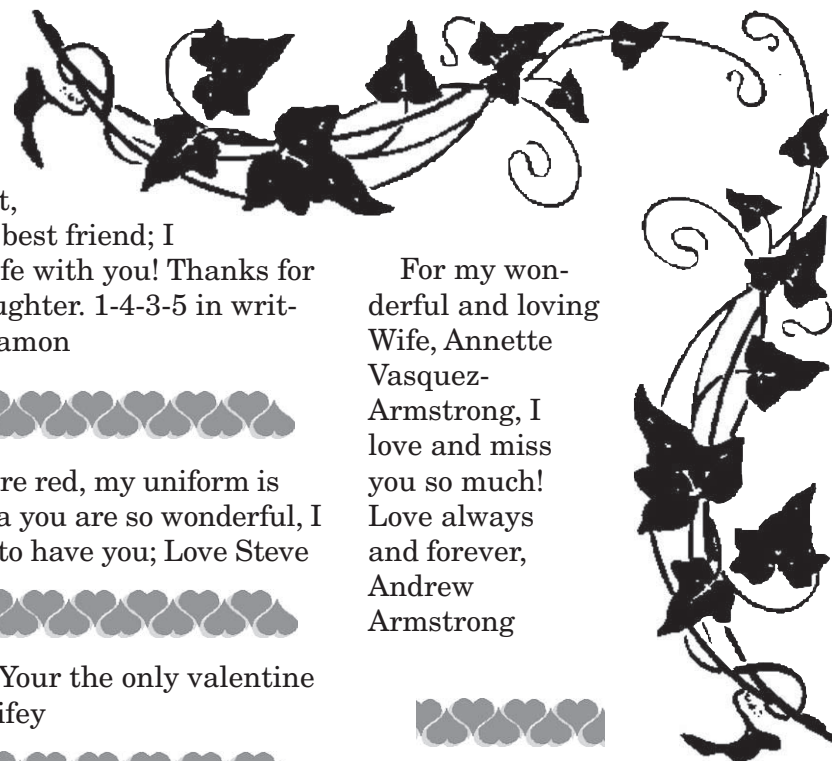 t,
best friend; I
fe with you! Thanks for
ughter. 1-4-3-5 in writ-
amon
re red, my uniform is
a you are so wonderful, I
to have you; Love Steve
Your the only valentine
ifey
For my won-
derful and loving
Wife, Annette
Vasquez-
Armstrong, I
love and miss
you so much!
Love always
and forever,
Andrew
Armstrong